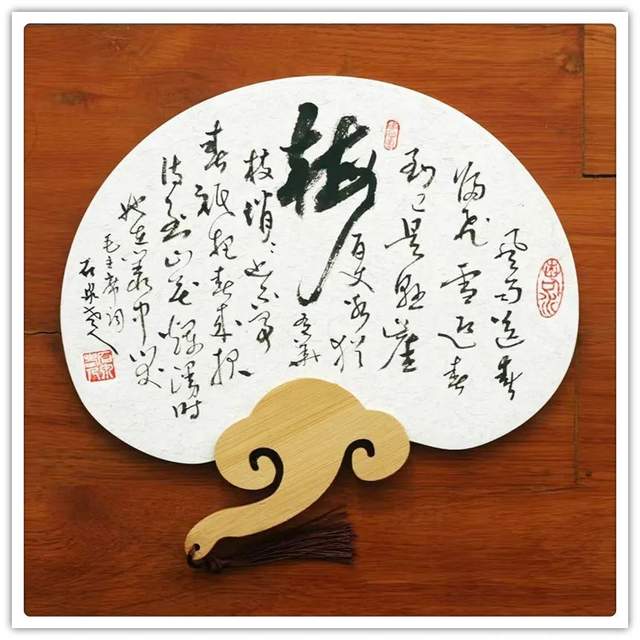 风雨送春
归飞雪迎春
到已是悬崖
百丈冰犹
有花
梅
枝俏〻也不争
春祇把春来报
待到山花烂漫时
她在丛中笑
毛主席词